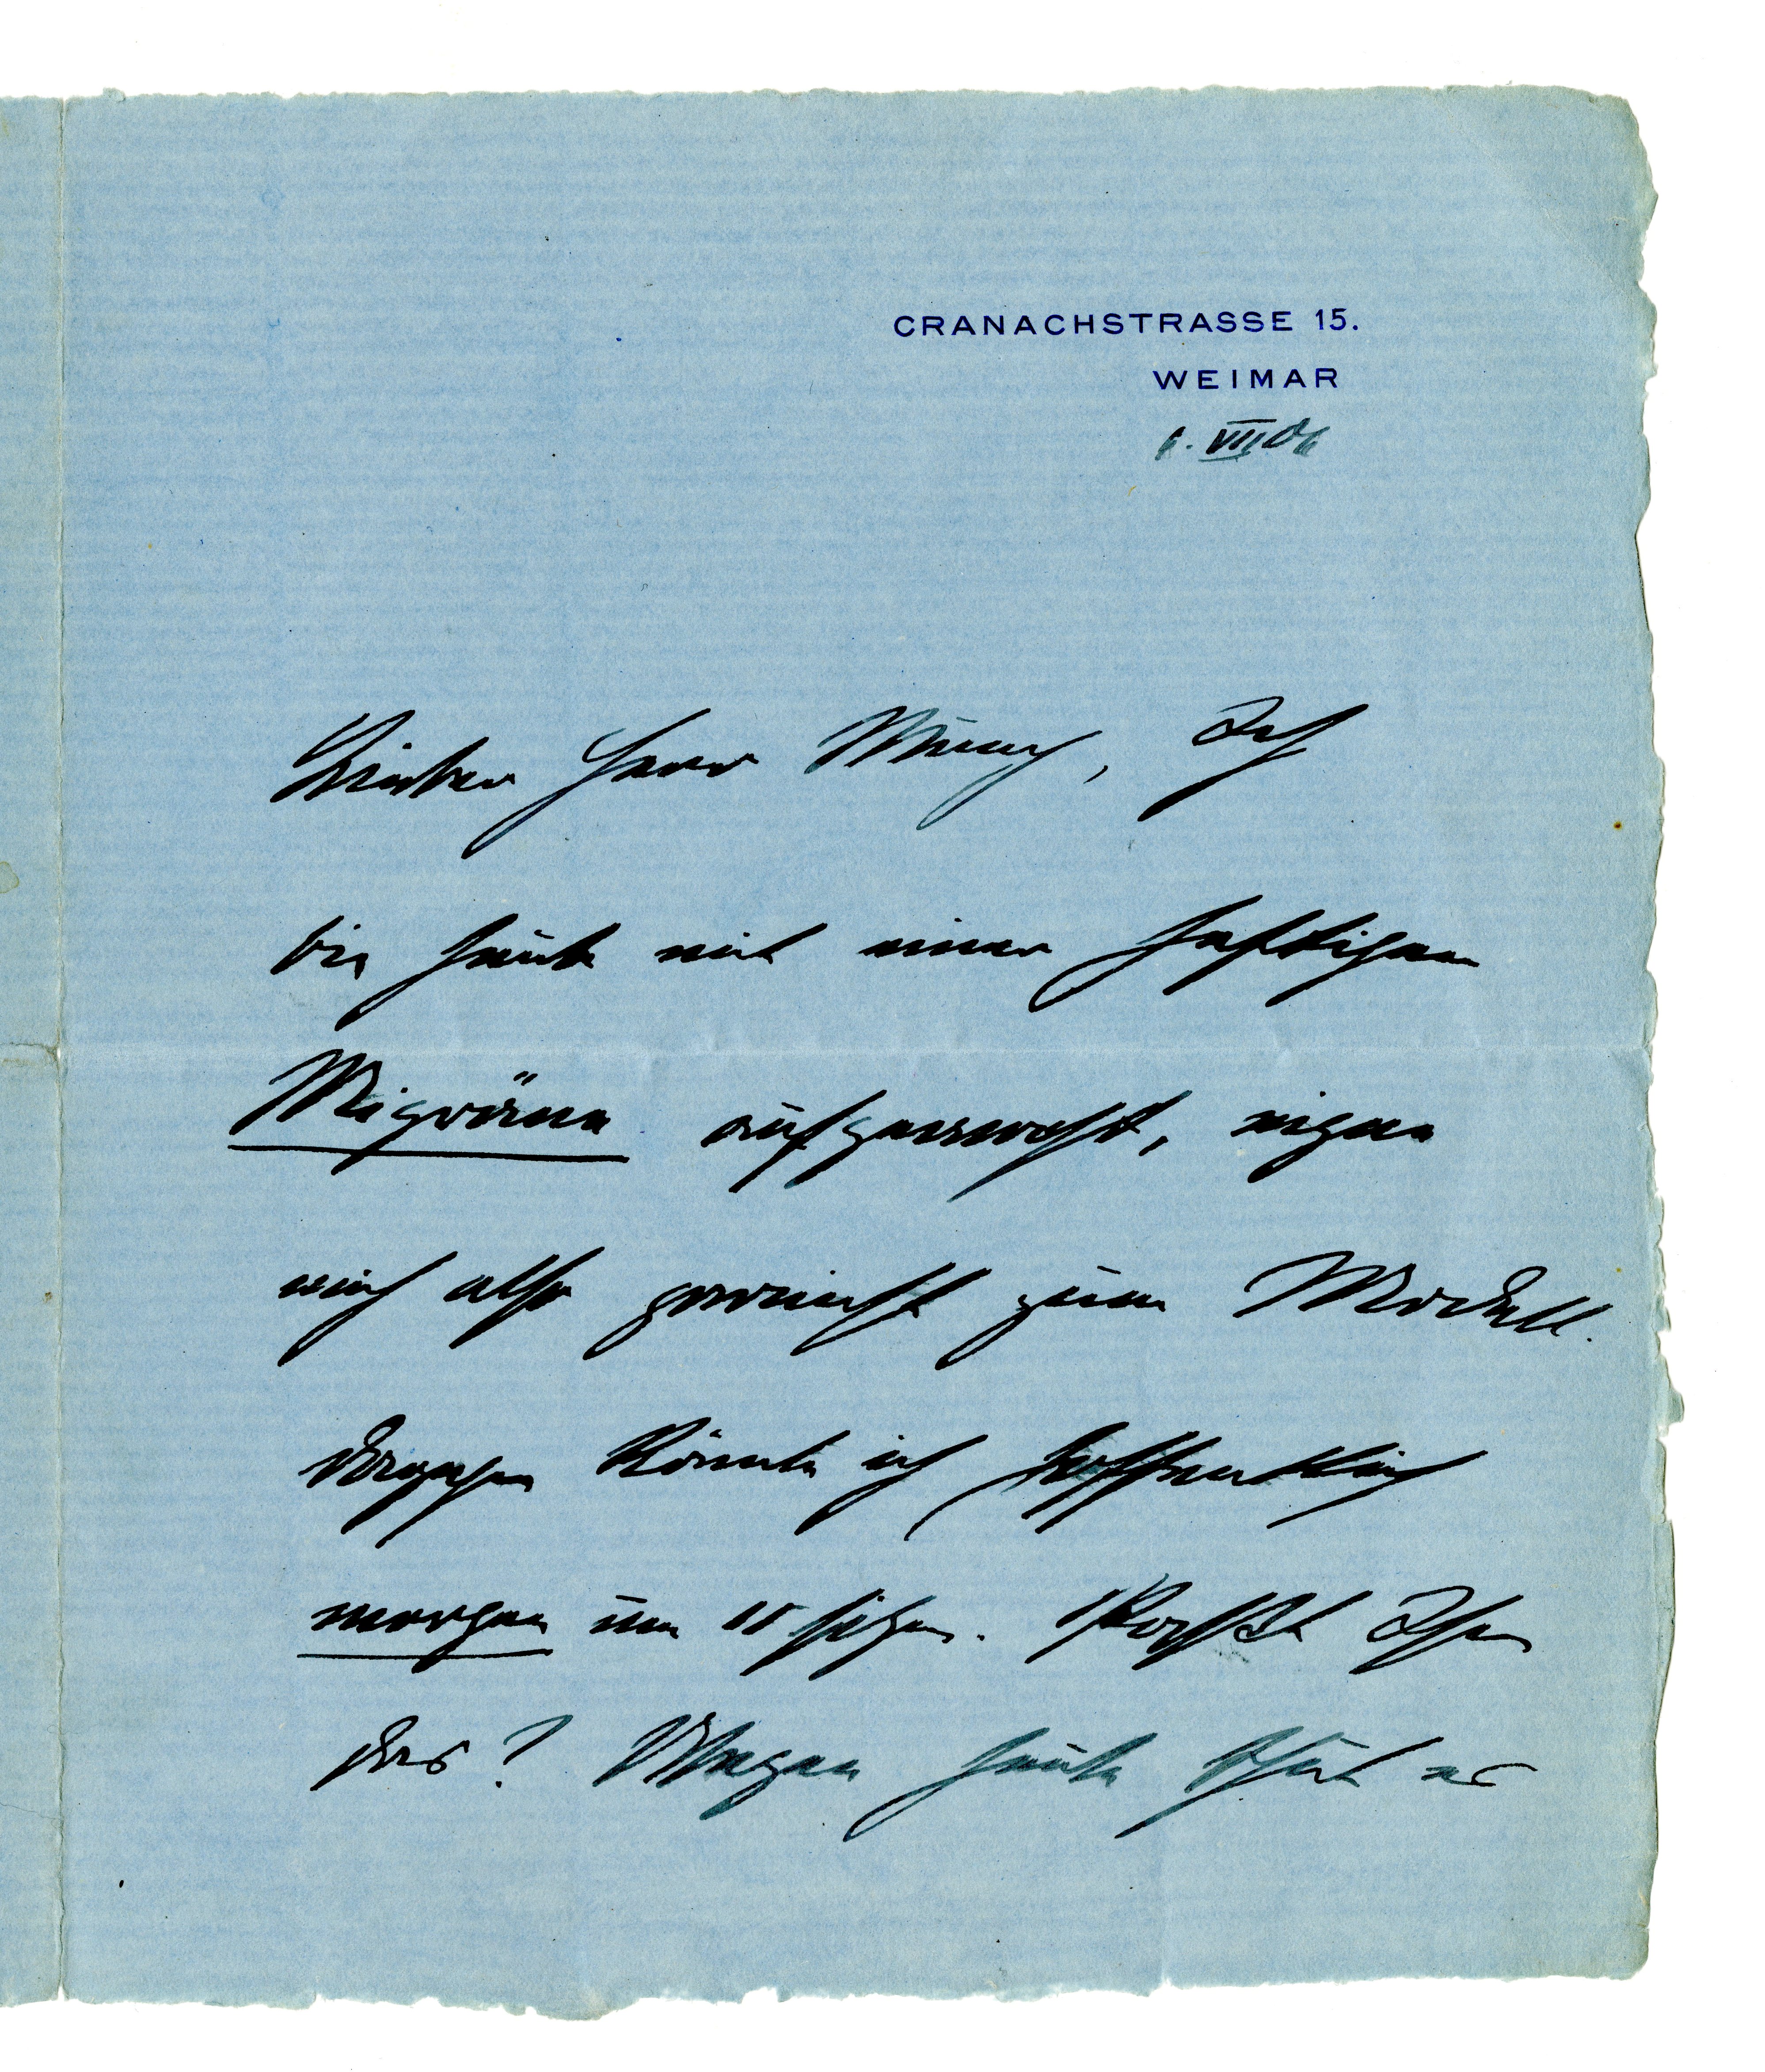 CRANACHSTRASSE 15.
WEIMAR
6. VII 06
Lieber Herr Munch, Ich
bin heute mit einer heftigen
Migräne aufgewacht, eigne
mich also schlecht zum Modell.
Dagegen könnte ich hoffentlich
morgen um 11 sitzen. Passt Ihnen
das? Wegen heute thut es